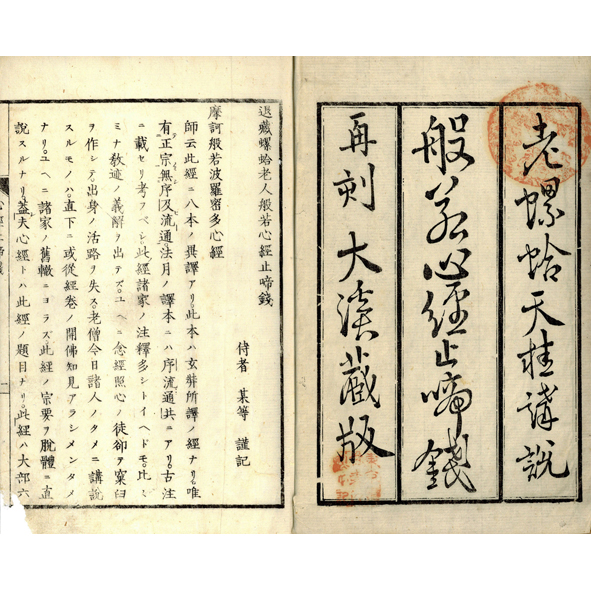 老螺蛤天桂講説
般若心經止啼錢
再刻 大湊藏版
退藏螺蛤老人般若心經止啼錢
侍者 某等 謹記
摩訶般若波羅密多心經
師云此經ニ八本ノ異譯アリ。此本ハ玄弉所譯ノ經ナリ。唯
有正宗無序及流通法月ノ譯本ニハ序流通共ニアリ。古注
ニ載セリ考フベシ此經諸家ノ注釋多シトイヘドモ。比〻
ミナ敎迹ノ義解ヲ出テズ。ユヘニ念經照心ノ徒卻ヲ窠臼
ヲ作シテ出身ノ活路ヲ失ス。老僧今日諸人ノタメニ講說
スルモノハ。直下ニ或從經卷ノ開佛知見アラシメンタメ
ナリ。ユヘニ諸家ノ舊轍ニヨラズ此經ノ宗要ヲ脫體ニ直
說スルナリ蓋夫心經トハ此經ノ題目ナリ。此經ハ大部六